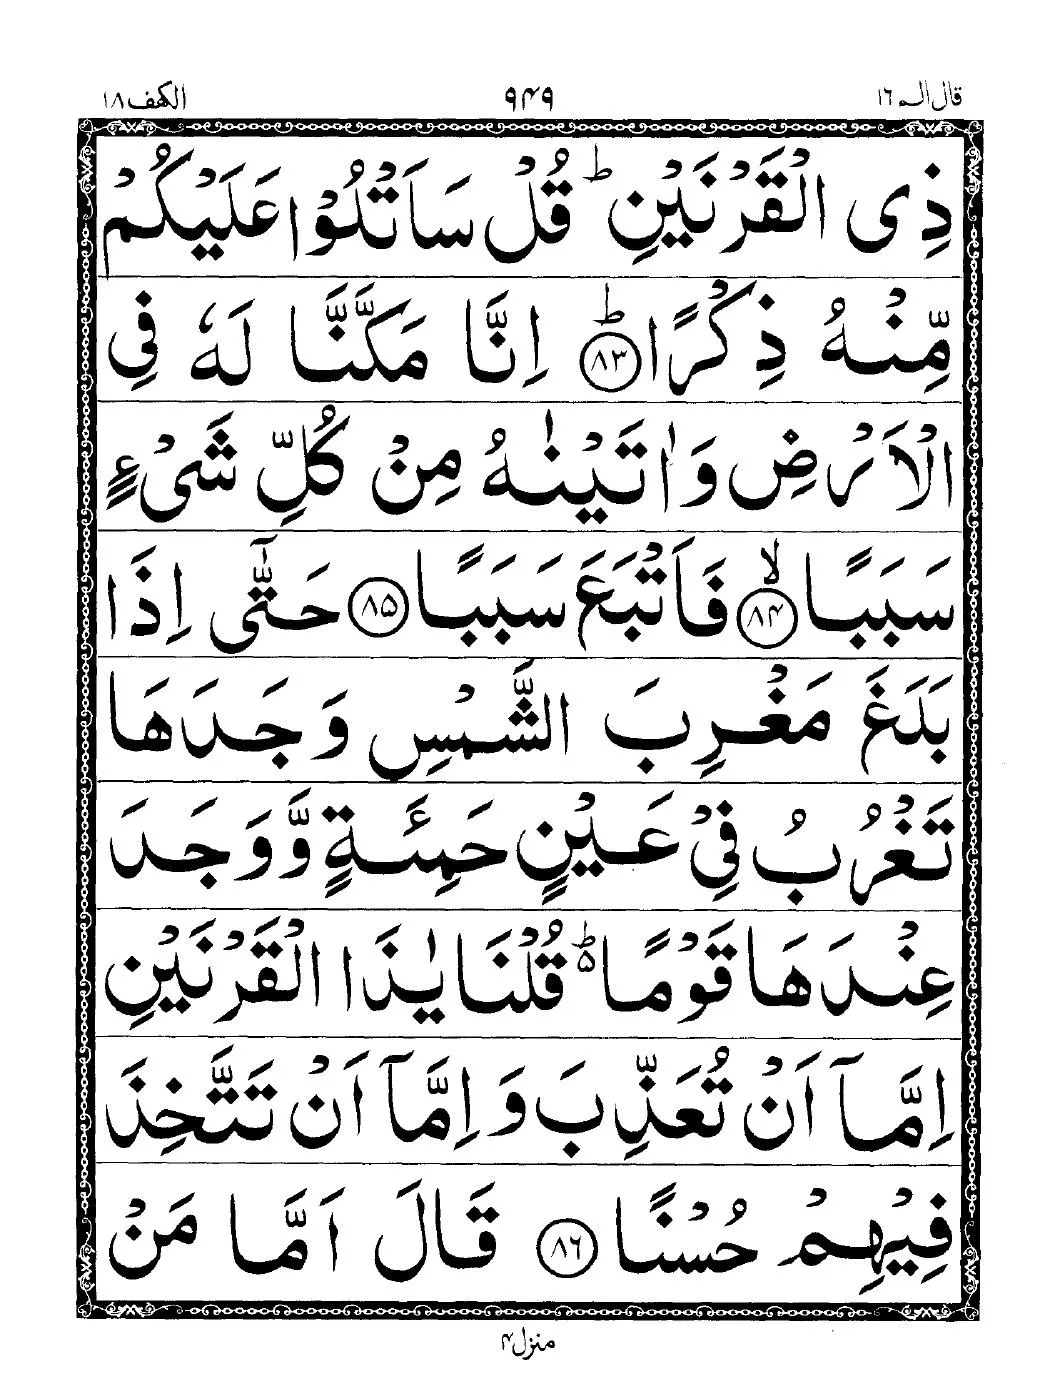 قال الم ١٦ ۹۴۹ الکهف ١٨
ذِی الْقَرْنَیْنِ ؕ قُلْ سَاَتْلُوْا عَلَیْكُمْ
مِّنْهُ ذِكْرًا ؕ﴿۸۳﴾ اِنَّا مَكَّنَّا لَهٗ فِی
الْاَرْضِ وَاٰتَیْنٰهُ مِنْ كُلِّ شَیْءٍ
سَبَبًا ۙ﴿۸۴﴾ فَاَتْبَعَ سَبَبًا ﴿۸۵﴾ حَتّٰۤی اِذَا
بَلَغَ مَغْرِبَ الشَّمْسِ وَجَدَهَا
تَغْرُبُ فِیْ عَیْنٍ حَمِئَةٍ وَّوَجَدَ
عِنْدَهَا قَوْمًا ؕ۵ قُلْنَا یٰذَا الْقَرْنَیْنِ
اِمَّاۤ اَنْ تُعَذِّبَ وَاِمَّاۤ اَنْ تَتَّخِذَ
فِیْهِمْ حُسْنًا ﴿۸۶﴾ قَالَ اَمَّا مَنْ
منزل ۴